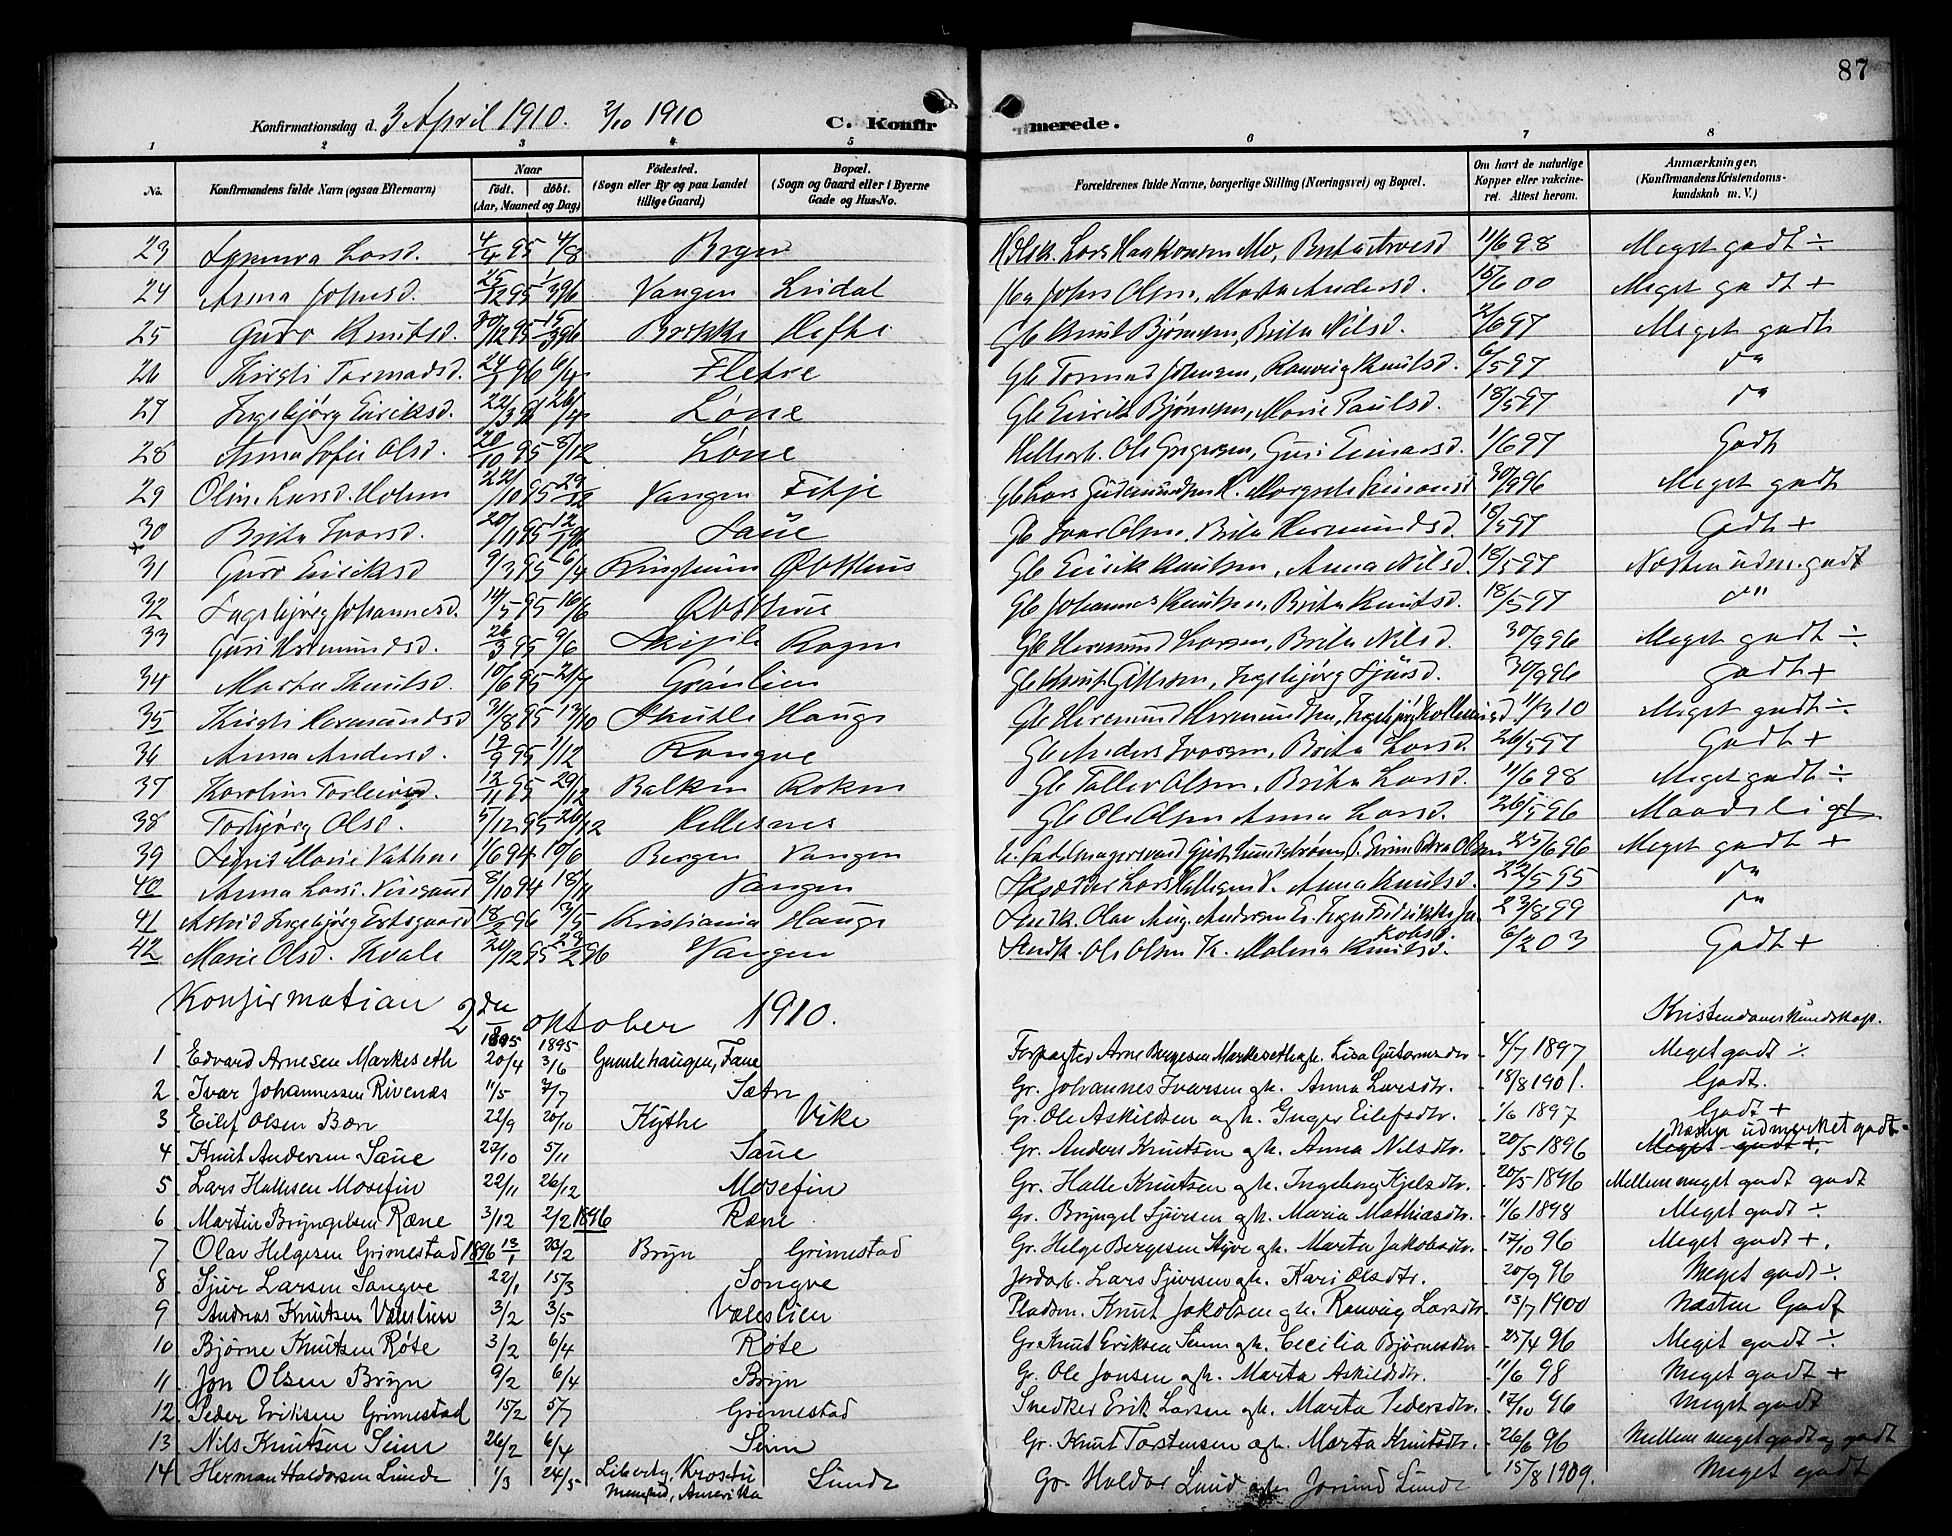 87
Konfirmationsdag d. 3 April 1910. 2/10 1910 C. Konfirmerede.
1 2 3 4 5 6 7 8
No. Konfirmandens fulde Navn (ogsaa Efternavn) Naar født. døbt. (Aar, Maaned og Dag) Fødested. (Sogn eller By og paa Landet tillige Gaard) Bopæl. (Sogn og Gaard eller i Byerne Gade og Hus-No. Forældrenes fulde Navne, borgerlige Stilling (Næringsvei) og Bopæl. Om havt de naturlige Kopper eller vakcineret. Attest herom. Anmærkninger, (Konfirmandens Kristendomskundskab m. V.)
23 Larsd. 4/4 95 4/8 Bryn Lars Haakonsen Mo, Brita 11/6 98 Meget godt ÷
24 Anna Johnsd. 25/12 95 1/3 96 Vangen Lridal John Olsen, Marta Andersd. 15/6 00 Meget godt +
25 Guro Knutsd. 30/12 95 15/3 96 Brekke Hefte Gb Knut Bjørnsen, Brita Nilsd. 2/6 97 Meget godt
26 Kirsti Tormodsd. 24/3 96 6/4 Fletre Gb Tormod Johnsen, Ranveig Knutsd. 6/5 97 do
27 Ingebjørg Eiriksd. 22/3 96 26/4 Løne Gb Eirik Bjørnsen, Marie Paulsd. 18/5 97 do
28 Anna Sofie Olsd. 20/10 95 8/12 Løne Ole Gregersen, Guri Einarsd. 1/6 97 Godt
29 Olina Larsd. Holm 22/10 95 29/12 Vangen Fitje Gb Lars Gudmundsen H. Margrete 30/9 96 Meget godt
30 Brita Ivarsd. 20/11 95 12/1 96 Saue Gb Ivar Olsen, Brita Hermundsd. 18/5 97 Godt +
31 Guro Eiriksd 9/3 95 6/4 Ringheim Østhus Gb Eirik Knutsen, Anna Nilsd. 18/5 97 Næsten udm. godt
32 Ingebjørg Johannesd. 14/5 95 16/6 Østhus Gb Johannes Knutsen, Brita Knutsd. 18/5 97 do
33 Guri Hermundsd. 26/3 95 9/6 Skiple Rogne Gb Hermund Larsen, Brita Nilsd. 30/9 96 Meget godt ÷
34 Marta Knutsd. 10/6 95 21/7 Grønlien Gb Knut Gitlesen, Ingebjørg Sjursd. 30/9 96 Godt +
35 Kirsti Hermundsd 3/8 95 13/10 Skutle Hauge Gb Hermund Hermundsen, Ingebjørg 11/3 10 Meget godt ÷
36 Anna Andersd. 19/9 95 1/12 Rongve Gb Anders Ivarsen, Brita Larsd. 26/5 97 Godt +
37 Karolina Torleivsd. 12/11 95 29/12 Balken Rokne Gb Tollev Olsen, Brita Larsd. 11/6 98 Meget godt ÷
38 Torbjørg Olsd. 5/12 95 26/12 Hellesnes Gb Ole Olsen Anna Larsd. 26/5 96 Maadeligt
39 Sigris Marie Vathne 1/6 94 10/6 Bergen Vangen 25/6 96 Meget godt +
40 Anna Larsd. 8/10 94 18/11 Vangen Skrædder Lars V. Anna Knutsd. 22/5 95 do
41 Astrid Ingebjørg Ertsgaard 18/2 96 3/5 Kristiania Hauge Snedk. Olav Aug. Andersen Er. Inga Fredrikke Jakobsd. 23/8 99 do
42 Marie Olsd. Kvale 24/12 95 23/2 96 Vangen Snedk. Ole Olsen K. Malena Knutsd. 6/2 03 Godt +
Konfirmation 2den oktober 1910. Kristendomskundskap.
1 Edvard Arnesen Markeseth 1895 20/4 1895 3/6 Gamlehaugen, Fane Forpagter Arne Bergesen Markeseth gh. Lisa Gutormsdtr 4/7 1897 Meget godt ÷
2 Ivar Johannessen Rivenæs 11/5 7/7 Sætre Gr. Johannes Ivarsen gh. Anna Larsdtr. 18/8 1901. Godt.
3 Eilef Olsen Bøen 22/9 20/10 Kythe Vike Gr. Ole Askildsen gh. Inger Eilefsdtr. 1/6 1897 Godt +
4 Knut Andersen Saue 27/10 5/11 Saue Gr. Anders Knutsen gh. Anna Nilsdtr. 20/5 1896 Næsten udmerket godt Meget godt +.
5 Lars Hallesen Mosefin 22/11 26/12 Mosefin Gr. Halle Knutsen gh. Ingeborg Kjelsdtr. 20/5 1896 Mellem meget godt godt
6 Martin Bryngelsen Ræne 3/12 2/2 1896 Ræne Gr. Bryngel Sjursen gh. Maria Mathiasdtr. 11/6 1898 Meget godt ÷
7 Olav Helgesen Grimestad 1896 13/1 23/2 Bryn Grimestad Gr. Helge Bergesen Styve gh. Marta Jakobsdtr. 17/10 96 Meget godt +.
8 Sjur Larsen Songve 22/1 15/3 Songve Jordarb. Lars Sjursen gh. Kari Olsdtr. 20/9 96 Meget godt ÷
9 Andreas Knutsen Væleslien 3/2 3/5 Væleslien Pladsm. Knut Jakobsen gh. Ranveig Larsdtr 13/7 1900 Næsten Godt
10 Bjørne Knutsen Røte 3/2 6/4 Røte Gr. Knut Eriksen Seim gh. Cecilia Bjørnesdtr 23/4 96 Meget godt ÷
11 Jon Olsen Bryn 9/2 6/4 Bryn Gr. Ole Jonsen gh. Marta Askildsdtr. 11/6 98 Meget godt +
12 Peder Eriksen Grimestad 15/2 5/7 Grimestad Snedker Erik Larsen gh. Marta Pedersdtr. 17/10 96 Meget godt
13 Nils Knutsen Seim 26/2 6/4 Seim Gr. Knut Torstensen gh. Marta Knutsdtr. 26/6 96 Mellem meget godt og godt
14 Herman Haldorsen Lunde 1/3 24/5 Liberty, Amerika Lunde Gr. Haldor Lund gh. Jorund Lunde 15/8 1909. Meget godt